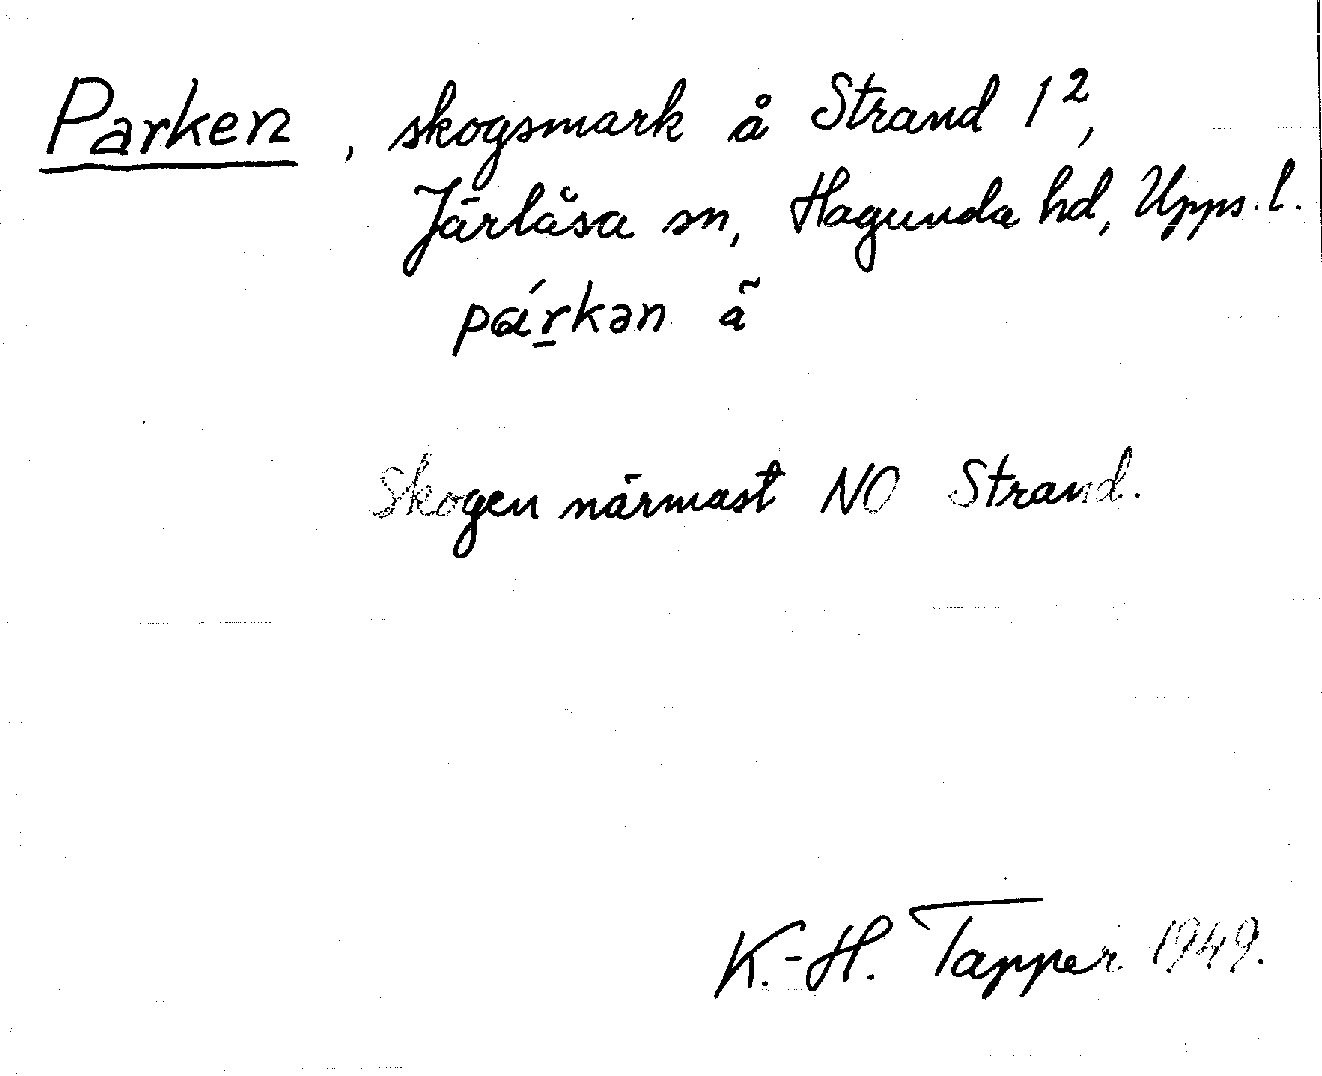 Parken, skogsmark å Strand 1²,
Järlåsa sn, Hagunda hd, Upps. l.
pár̲kən ã
Skogen närmast NO Strand.
K.-H. Tapper 1949.